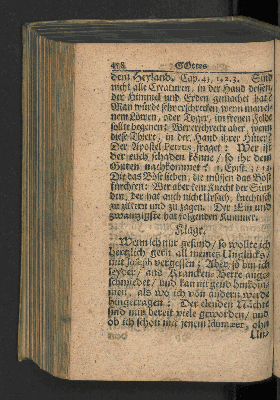 458 GOttes
dem Heyland. Cap. 43, 1. 2. 3. Sind
nicht alle Creaturen, in der Hand dessen,
der Himmel und Erden gemachet hat?
Man würde sehr erschrecken, wenn man ei-
nem Löwen, oder Tyger, im freyen Felde
sollte begegnen: Wer erschreckt aber, wenn
diese Thiere, in der Hand ihrer Hüter?
Der Apostel Petrus, fraget: Wer ist
der euch schaden könne / so ihr dem
Guten nachkommet? 1. Epist. 3, 13.
Die das Böse lieben, die müssen das Böse
fürchten: Wer aber kein Knecht der Sün-
den, der hat auch nicht Ursach, knechtisch
zu zittern und zu zagen. Der Ein und
zwantzigste hat folgenden Kummer.
Klagt.
Wenn ich nur gesund / so wollte ich
hertzlich gern all meines Unglücks /
mit Joseph vergessen: Aber, so bin ich
leyder / ans Krancken-Bette ange-
schmiedet / und kan nirgend hinkom-
men, als wo ich von andern werde
hingetragen: Der elenden Nächte
sind mir bereit viele geworden / und
ob ich schon mit jenem
Un-